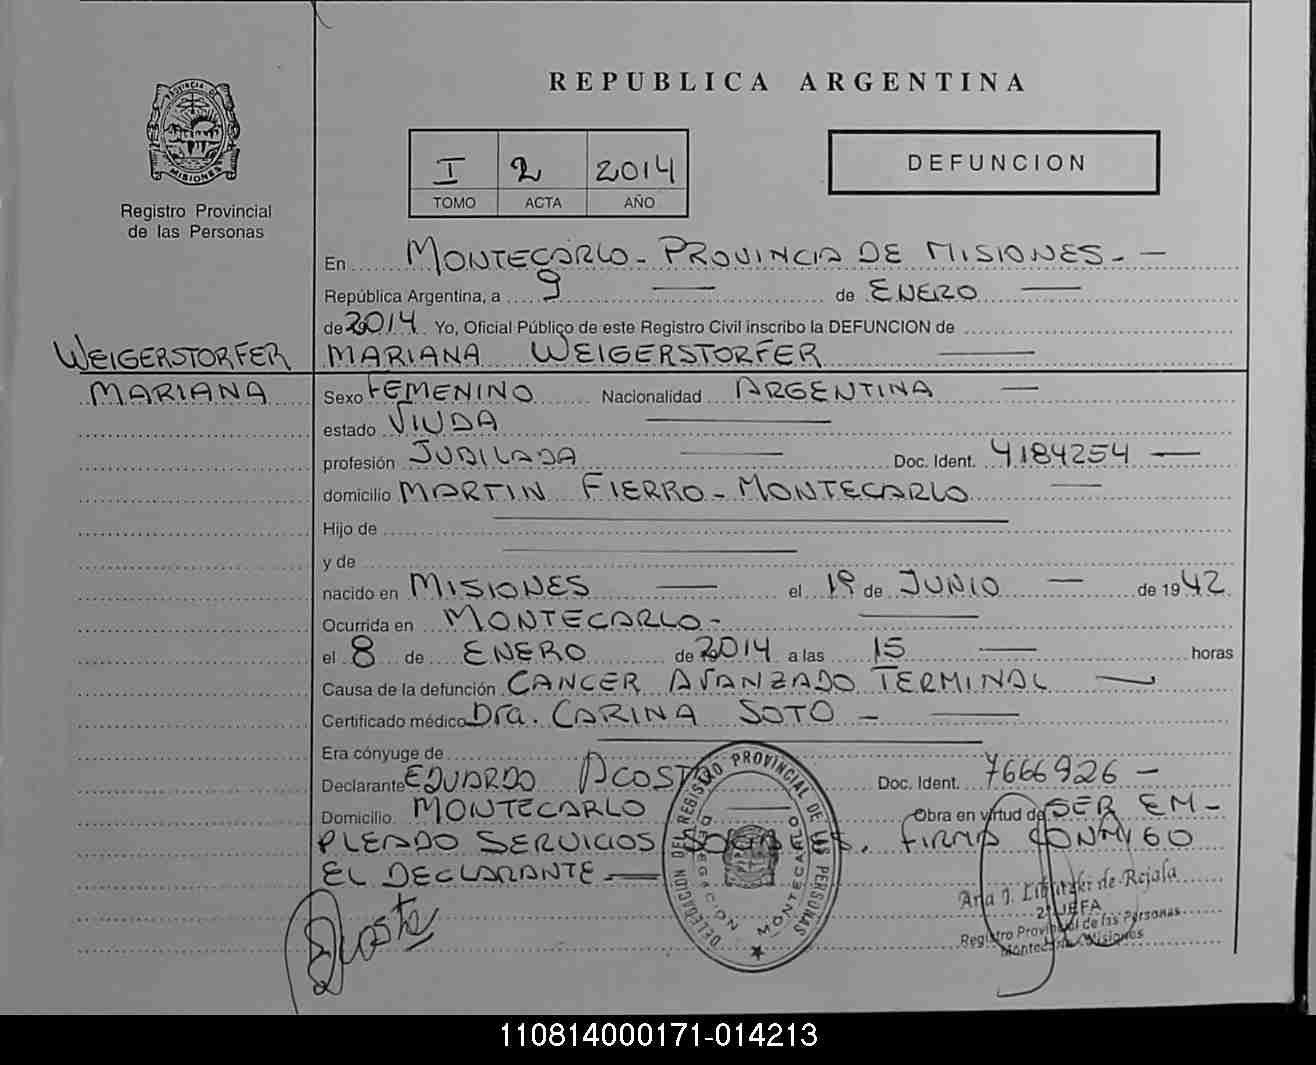 REPUBLICA ARGENTINA
PROVINCIA DE
MISIONES
Registro Provincial
de las Personas
I 2 2014
TOMO ACTA AÑO
DEFUNCION
En MONTECARLO - PROVINCIA DE MISIONES. —
República Argentina, a 9 — de ENERO —
de 2014 Yo, Oficial Público de este Registro Civil inscribo la DEFUNCION de
WEIGERSTORFER MARIANA WEIGERSTORFER —
MARIANA Sexo FEMENINO Nacionalidad ARGENTINA —
estado VIUDA —
profesión JUBILADA — Doc. Ident. 4184254 —
domicilio MARTIN FIERRO - MONTECARLO —
Hijo de —
y de —
nacido en MISIONES — el 19 de JUNIO — de 1942
Ocurrida en MONTECARLO - —
el 8 de ENERO de 2014 a las 15 — horas
Causa de la defunción CANCER AVANZADO TERMINAL —
Certificado médico Dra. CARINA SOTO - —
Era cónyuge de —
Declarante EDUARDO ACOSTA Doc. Ident. 7666926 —
Domicilio MONTECARLO — Obra en virtud de SER EM-
PLEADO SERVICIOS SOCIALES. FIRMA CONMIGO
EL DECLARANTE. —
DELEGACION DEL REGISTRO PROVINCIAL DE LAS PERSONAS
DELEGACION MONTECARLO
Acosta
Ana J. de Rejala
2º JEFA
Registro Provincial de las Personas
Montecarlo Misiones
110814000171-014213